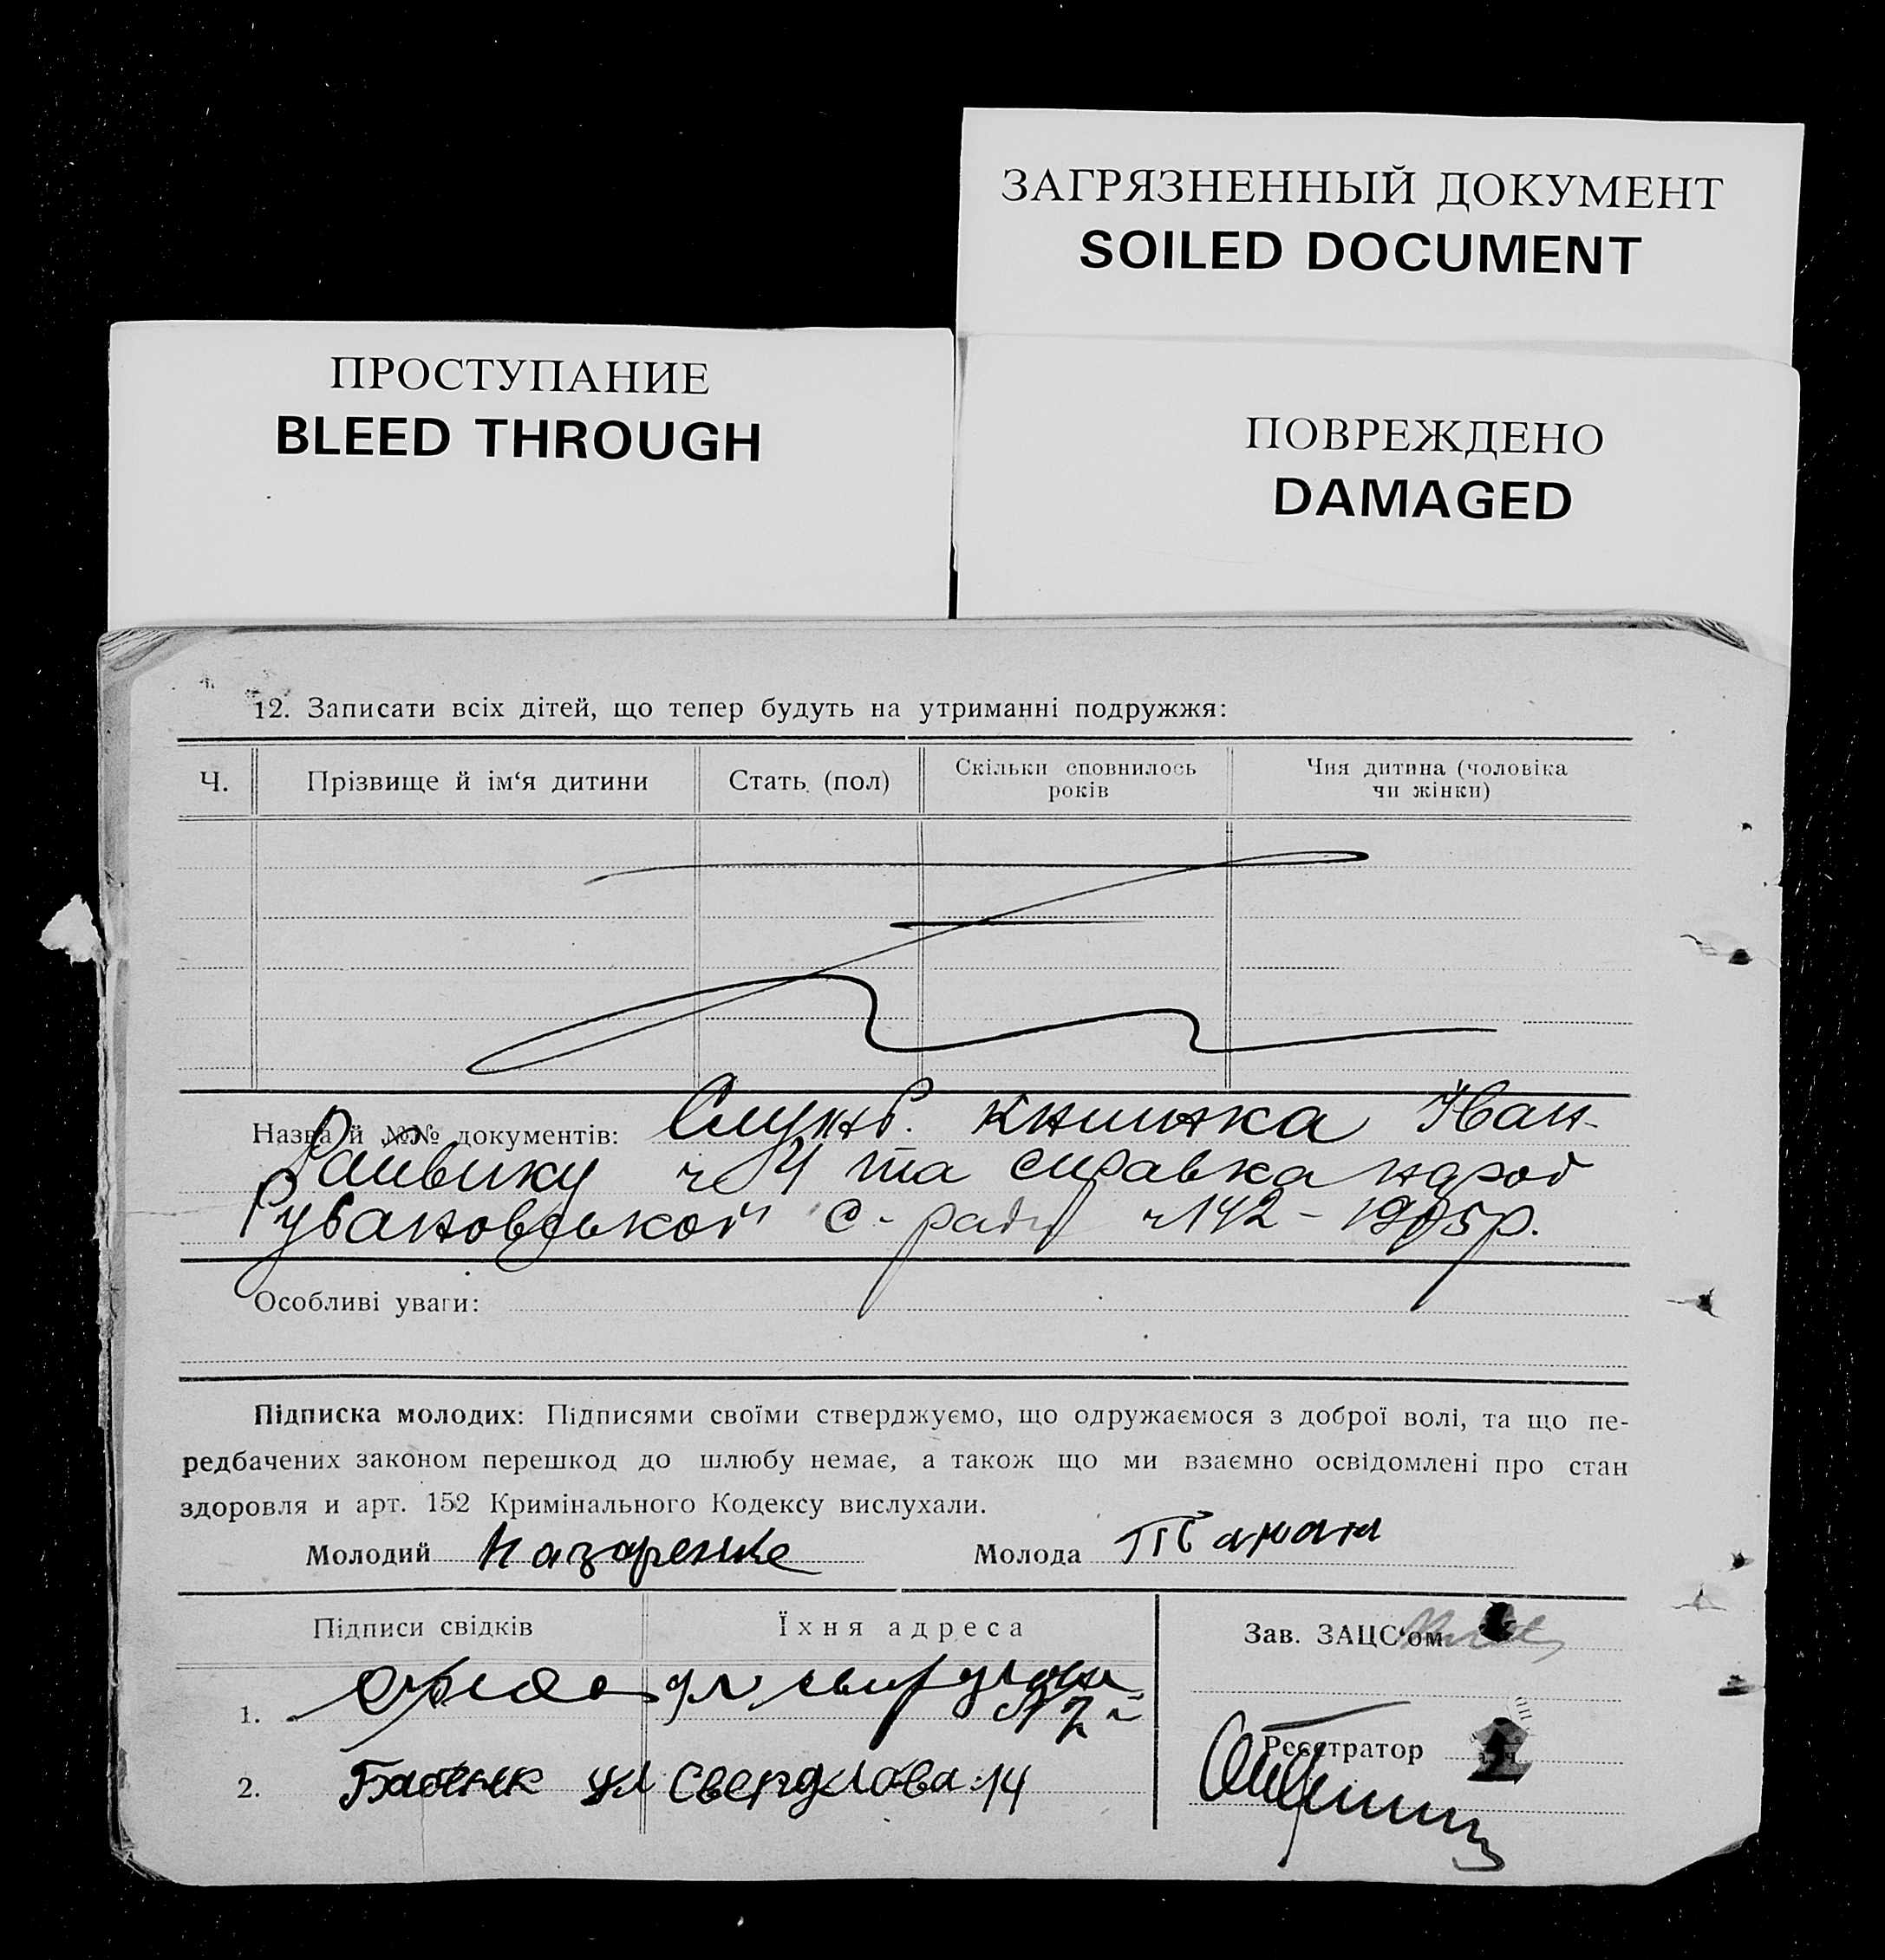 ЗАГРЯЗНЕННЫЙ ДОКУМЕНТ
SOILED DOCUMENT
ПРОСТУПАНИЕ
BLEED THROUGH
ПОВРЕЖДЕНО
DAMAGED
12. Записати всіх дітей, що тепер будуть на утриманні подружжя:
Ч.
Прізвище й ім‘я дитини
Стать (пол)
Скільки сповнилось
років
Чия дитина (чоловіка
чи жінки)
Назва й №№ документів: Служб. книжка Иван-
та справка
Рубановської с-ради ч 142 -
Особливі уваги:
Підписка молодих: Підписями своїми стверджуємо, що одружаємося з доброї волі, та що пе-
редбачених законом перешкод до шлюбу немає, а також що ми взаємно освідомлені про стан
здоровля и арт. 152 Кримінального Кодексу вислухали.
Молодий Назаренко
Молода
Підписи свідків
Їхня адреса
Зав. ЗАЦС‘ом
1.
Реєстратор
2. ул Свердлова 14